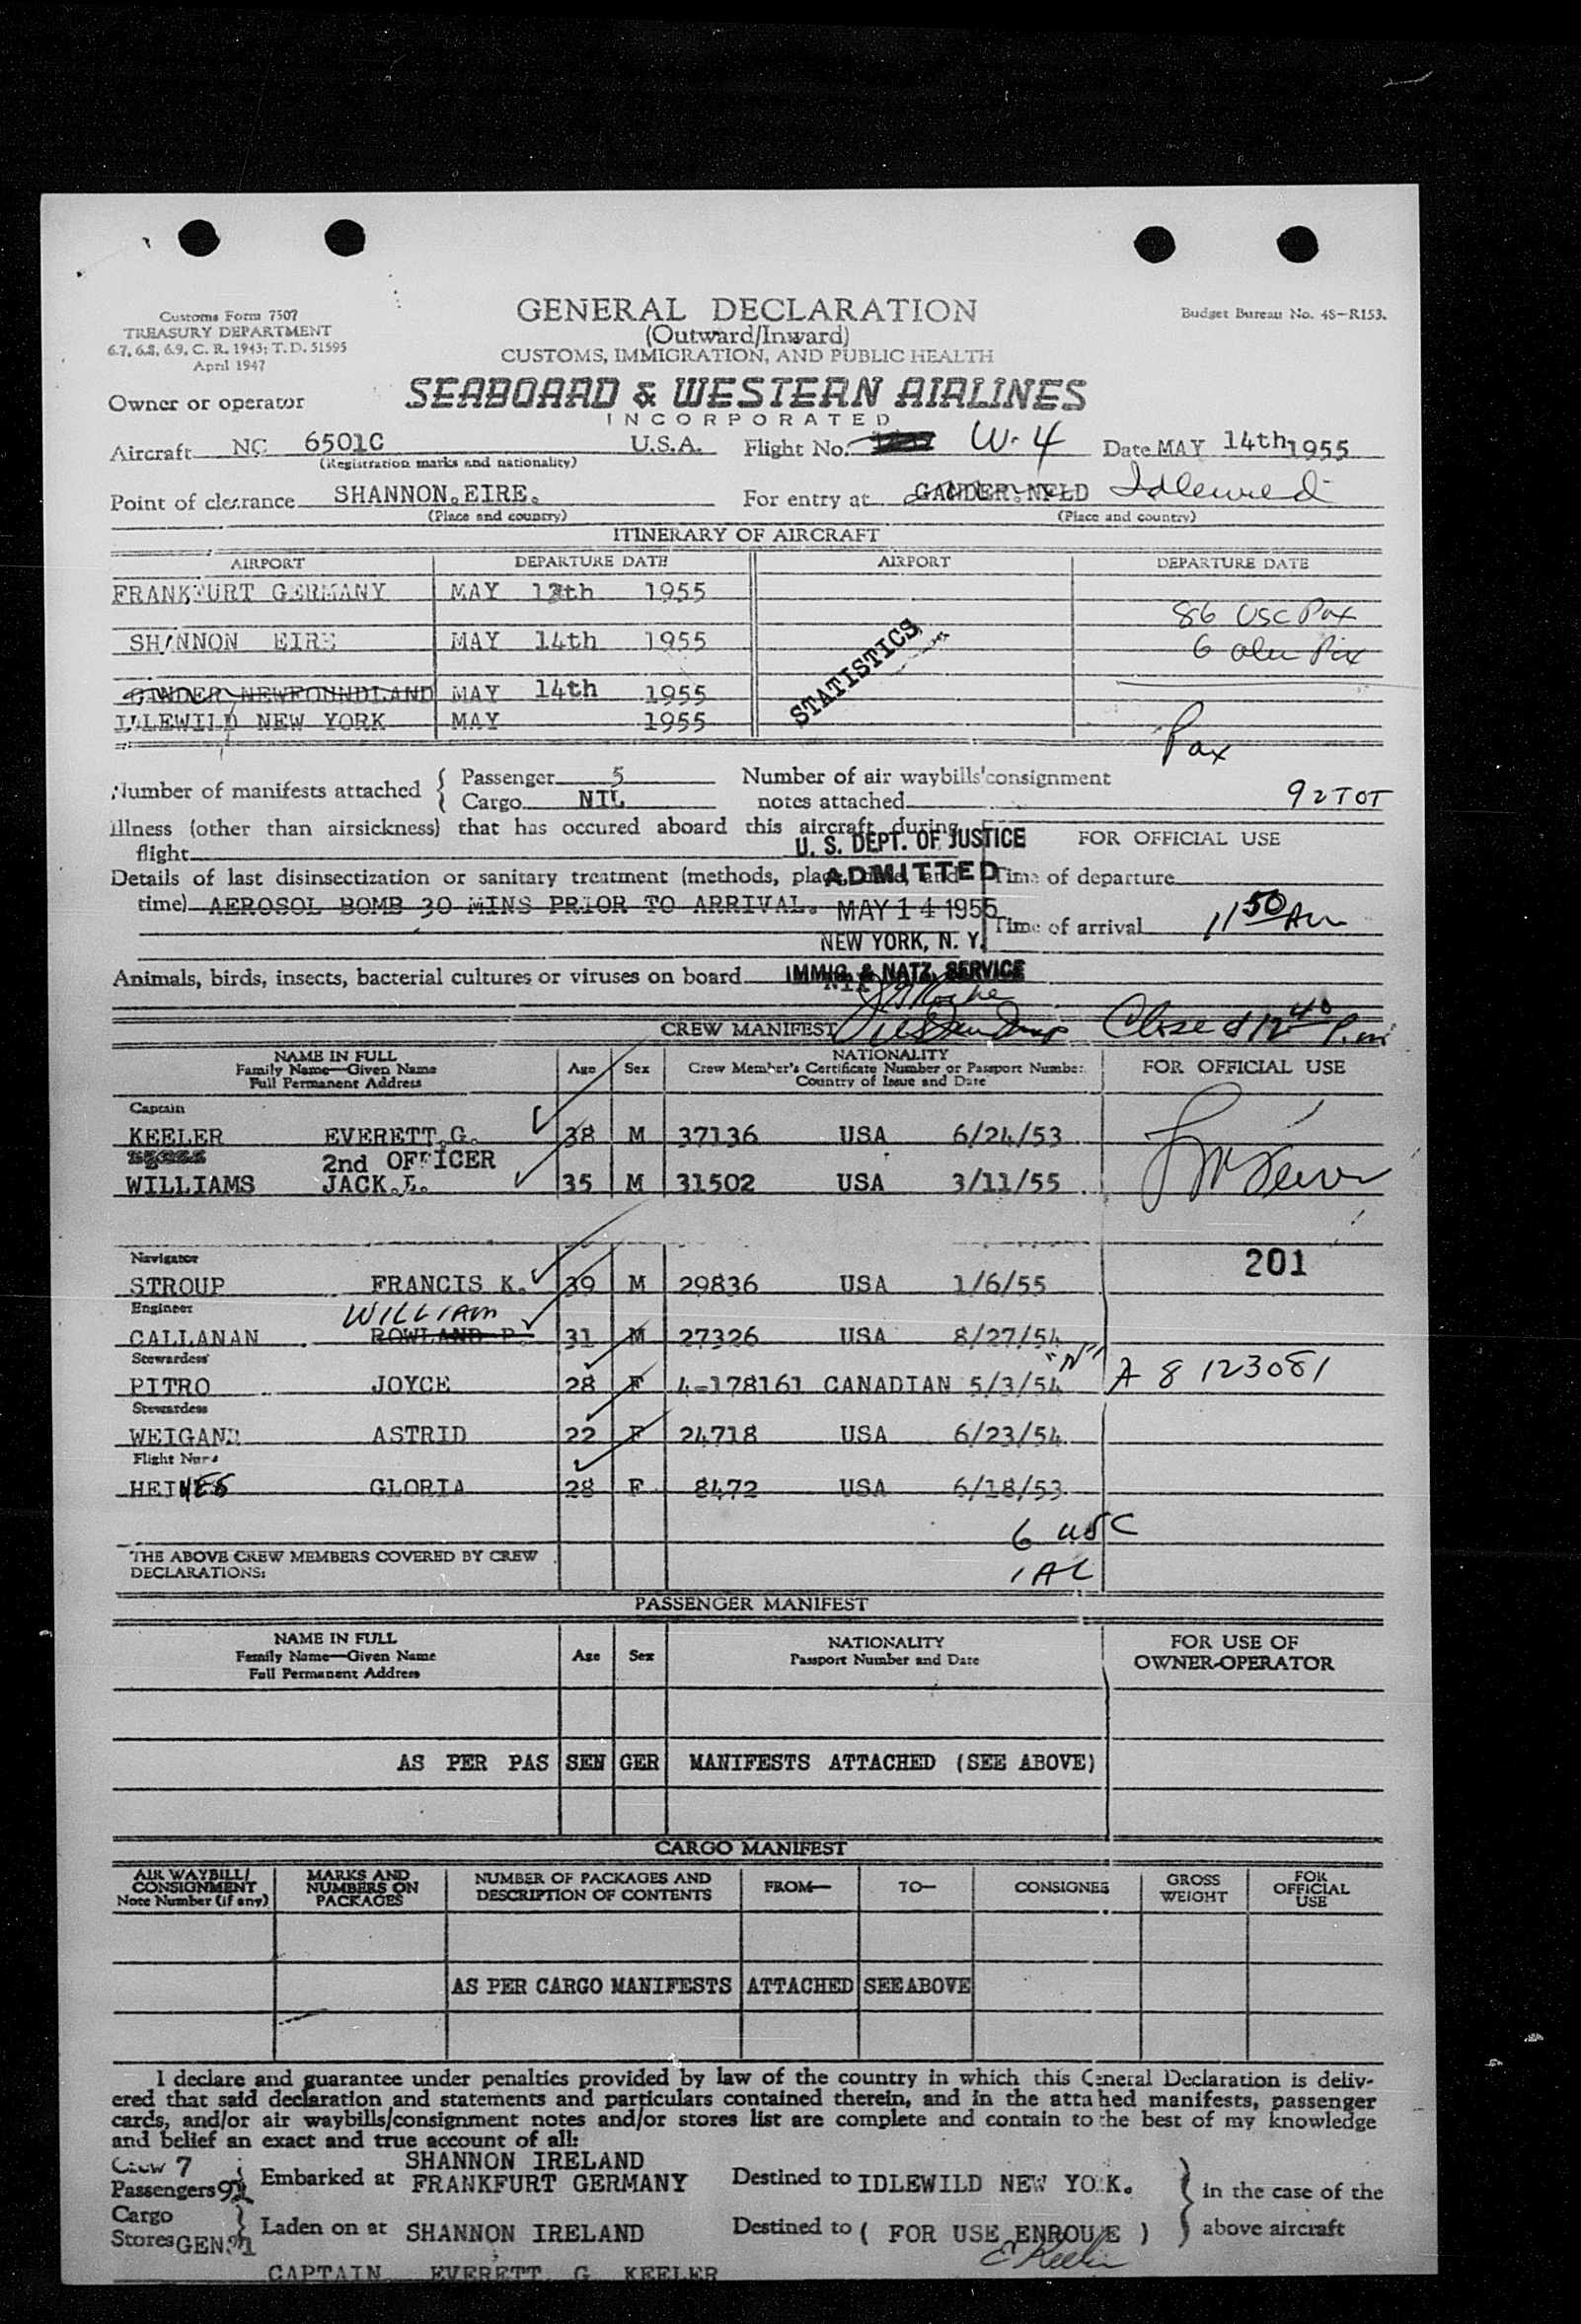 GENERAL DECLARATION
(Outward/Inward)
CUSTOMS, IMMIGRATION, AND PUBLIC HEALTH
Customs Form 7507
TREASURY DEPARTMENT
6.7, 6.8, 6.9, C. R. 1943; T. D. 51595
April 1947
Budget Bureau No. 48-R153.
Owner or operator SEABOARD & WESTERN AIRLINES
INCORPORATED
Aircraft NC 6501C U.S.A. Flight No. W-4 Date MAY 14th 1955
(Registration marks and nationality)
Point of clearance SHANNON.EIRE. For entry at GANDER.NFLD Idlewild
(Place and country) (Place and country)
ITINERARY OF AIRCRAFT
AIRPORT DEPARTURE DATE AIRPORT DEPARTURE DATE
FRANKFURT GERMANY MAY 13th 1955
86 USC Pax
SHANNON EIRE MAY 14th 1955
6 alien Pax
STATISTICS
GANDER NEWFOUNDLAND MAY 14th 1955
IDLEWILD NEW YORK MAY 1955
Pax
Number of manifests attached { Passenger 5 Number of air waybills'consignment
Cargo NIL notes attached 92 TOT
Illness (other than airsickness) that has occured aboard this aircraft during
flight
U. S. DEPT. OF JUSTICE
FOR OFFICIAL USE
Details of last disinsectization or sanitary treatment (methods, place, date, and
ADMITTED
Time of departure
time) AEROSOL BOMB 30 MINS PRIOR TO ARRIVAL.
MAY 14 1955
Time of arrival 11 50 AM
NEW YORK, N. Y.
Animals, birds, insects, bacterial cultures or viruses on board NIL
IMMIG. & NATZ. SERVICE
CREW MANIFEST
Closed 12 40 P.m
NAME IN FULL
Family Name—Given Name
Full Permanent Address
Age Sex
NATIONALITY
Crew Member's Certificate Number or Passport Number
Country of Issue and Date
FOR OFFICIAL USE
Captain
KEELER EVERETT.G. 38 M 37136 USA 6/24/53
2nd OFFICER
WILLIAMS JACK.L. 35 M 31502 USA 3/11/55
Navigator
201
STROUP FRANCIS K. 39 M 29836 USA 1/6/55
Engineer
WILLIAM
CALLANAN ROWLAND P. 31 M 27326 USA 8/27/54
Stewardess
"N"
PITRO JOYCE 28 F 4-178161 CANADIAN 5/3/54 A 8 123081
Stewardess
WEIGAND ASTRID 22 F 24718 USA 6/23/54
Flight Nurse
HEINES GLORIA 28 F 8472 USA 6/18/53
6 USC
THE ABOVE CREW MEMBERS COVERED BY CREW
DECLARATIONS:
1 AL
PASSENGER MANIFEST
NAME IN FULL
Family Name—Given Name
Full Permanent Address
Age Sex
NATIONALITY
Passport Number and Date
FOR USE OF
OWNER-OPERATOR
AS PER PAS SEN GER MANIFESTS ATTACHED (SEE ABOVE)
CARGO MANIFEST
AIR WAYBILL/
CONSIGNMENT
Note Number (if any)
MARKS AND
NUMBERS ON
PACKAGES
NUMBER OF PACKAGES AND
DESCRIPTION OF CONTENTS
FROM— TO— CONSIGNEE
GROSS
WEIGHT
FOR
OFFICIAL
USE
AS PER CARGO MANIFESTS ATTACHED SEE ABOVE
I declare and guarantee under penalties provided by law of the country in which this General Declaration is deliv-
ered that said declaration and statements and particulars contained therein, and in the attached manifests, passenger
cards, and/or air waybills/consignment notes and/or stores list are complete and contain to the best of my knowledge
and belief an exact and true account of all:
Crew 7 SHANNON IRELAND
Passengers 92 Embarked at FRANKFURT GERMANY Destined to IDLEWILD NEW YORK. in the case of the
Cargo
Stores GEN. Laden on at SHANNON IRELAND Destined to ( FOR USE ENROUTE ) above aircraft
E Keeler
CAPTAIN EVERETT G KEELER